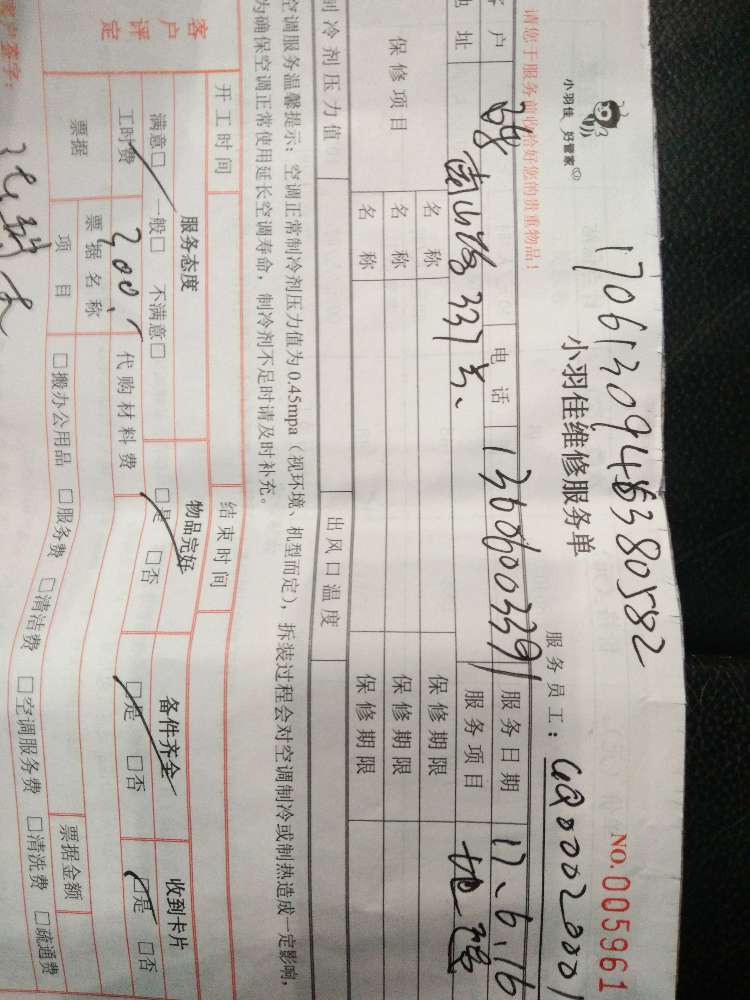 17061309485380582
小羽佳 好管家
小羽佳维修服务单
NO.005961
服务员工：GQ00020001
请您于服务前收拾好您的贵重物品！
客户
电话 13606003391
服务日期 17.6.16
地址 南山路337号、
服务项目
保修项目
名称 保修期限
名称 保修期限
名称 保修期限
制冷剂压力值 出风口温度
空调服务温馨提示：空调正常制冷剂压力值为0.45mpa（视环境、机型而定），拆装过程会对空调制冷或制热造成一定影响，
为确保空调正常使用延长空调寿命，制冷剂不足时请及时补充。
开工时间 结束时间
客户评定
服务态度 物品完好 备件齐全 收到卡片
满意□ 一般□ 不满意□ □是 □否 □是 □否 □是 □否
工时费 300. 代购材料费
票据
票据名称 票据金额
项目 □搬办公用品 □服务费 □清洁费 □空调服务费 □清洗费 □疏通费
客户签字：